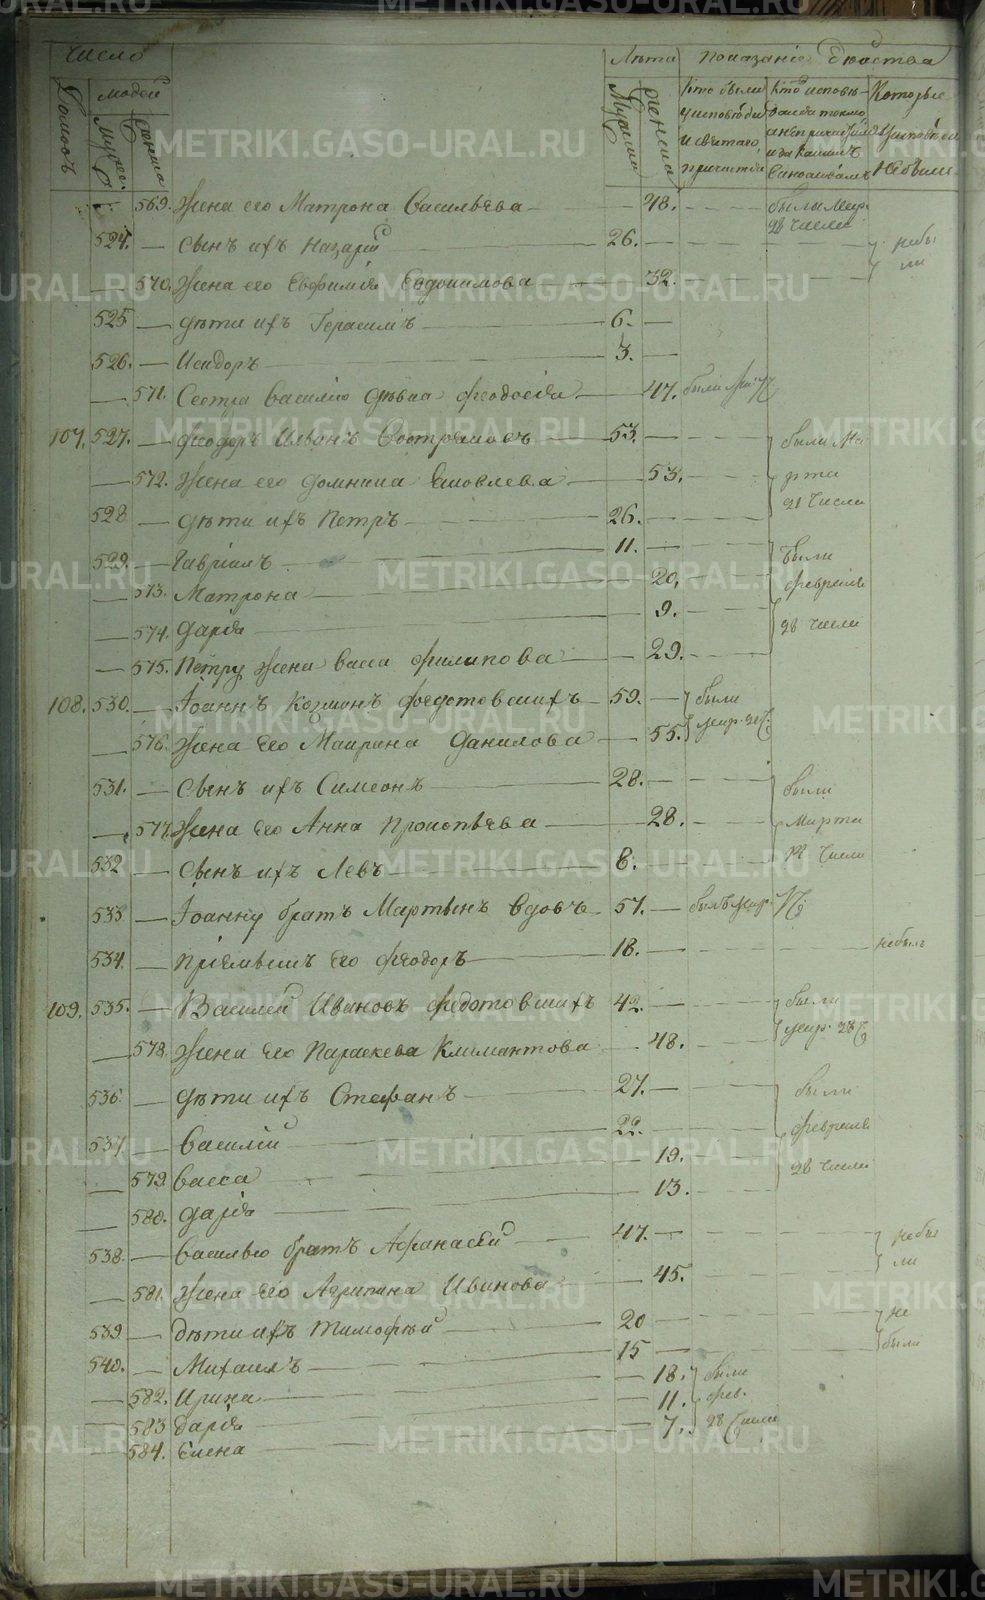 Число
Лѣта
Показаніе
Домовъ
людей
Мужес
женска
Мужска
женска
Кто были
у исповѣди
и святаго
причастія
Кто исповѣ-
дался токмо
а не причастил
и за какимъ
Которые
у исповѣди
не были
569. Жена его Матрона Васильева 48. были мар.
28 числа
524. сынъ ихъ Назарій 26. небы
ли
570. Жена его Евфимія Евдокимова 32.
525. дѣти ихъ Герасимъ 6.
526. Исидоръ 3.
571. Сестра Василію дѣвка Феодосія 47. были
107. 527. Феодоръ Ивановъ 53. были Ма
рта
28 числа
572. Жена его Домника Яковлева 53.
528. дѣти ихъ Петръ 26.
529. Гавріилъ 11. были
февраля
28 числа
573. Матрона 20.
574. Дарія 9.
575. Петру жена Васса Филипова 29.
108. 530. Іоаннъ Козминъ Федотовскихъ 59. были
мар.
576. Жена его Маирина Данилова 55.
531. сынъ ихъ Симеонъ 28. были
марта
числа
577. Жена его Анна Прокопьева 28.
532. сынъ ихъ Левъ 8.
533. Іоанну братъ Мартынъ вдовъ 57. былъ мар.
534. Пріемышъ его Феодоръ 18. небылъ
109. 535. Василей Ивановъ Федотовскихъ 42. были
мар. 28 Ч
578. Жена его Параскева Климантова 48.
536. дѣти ихъ Стефанъ 27. были
февраля
28 числа
537. Василій 22.
579. Васса 19.
580. Дарія 13.
538. Василью братъ Афанасей 47. небы
ли
581. Жена его Агрипина Иванова 45.
539. дѣти ихъ Тимофѣй 20 не
были
540. Михаилъ 15
582. Ирина 18. были
фев.
28 числа
583 Дарія 11.
584. Елена 7.
METRIKI.GASO-URAL.RU